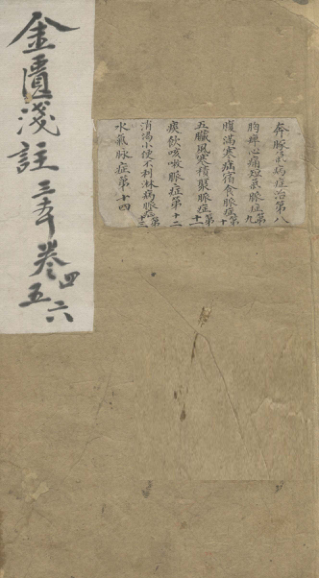 奔豚氣病症治第八
胸痺心痛短氣脈症第九
腹滿寒疝宿食脈症第十
五臟風寒積聚脈症第十一
痰飲咳嗽脈症第十二
消渴小便不利淋病脈症第十三
水氣脈症第十四
金匱淺註三本卷四五六